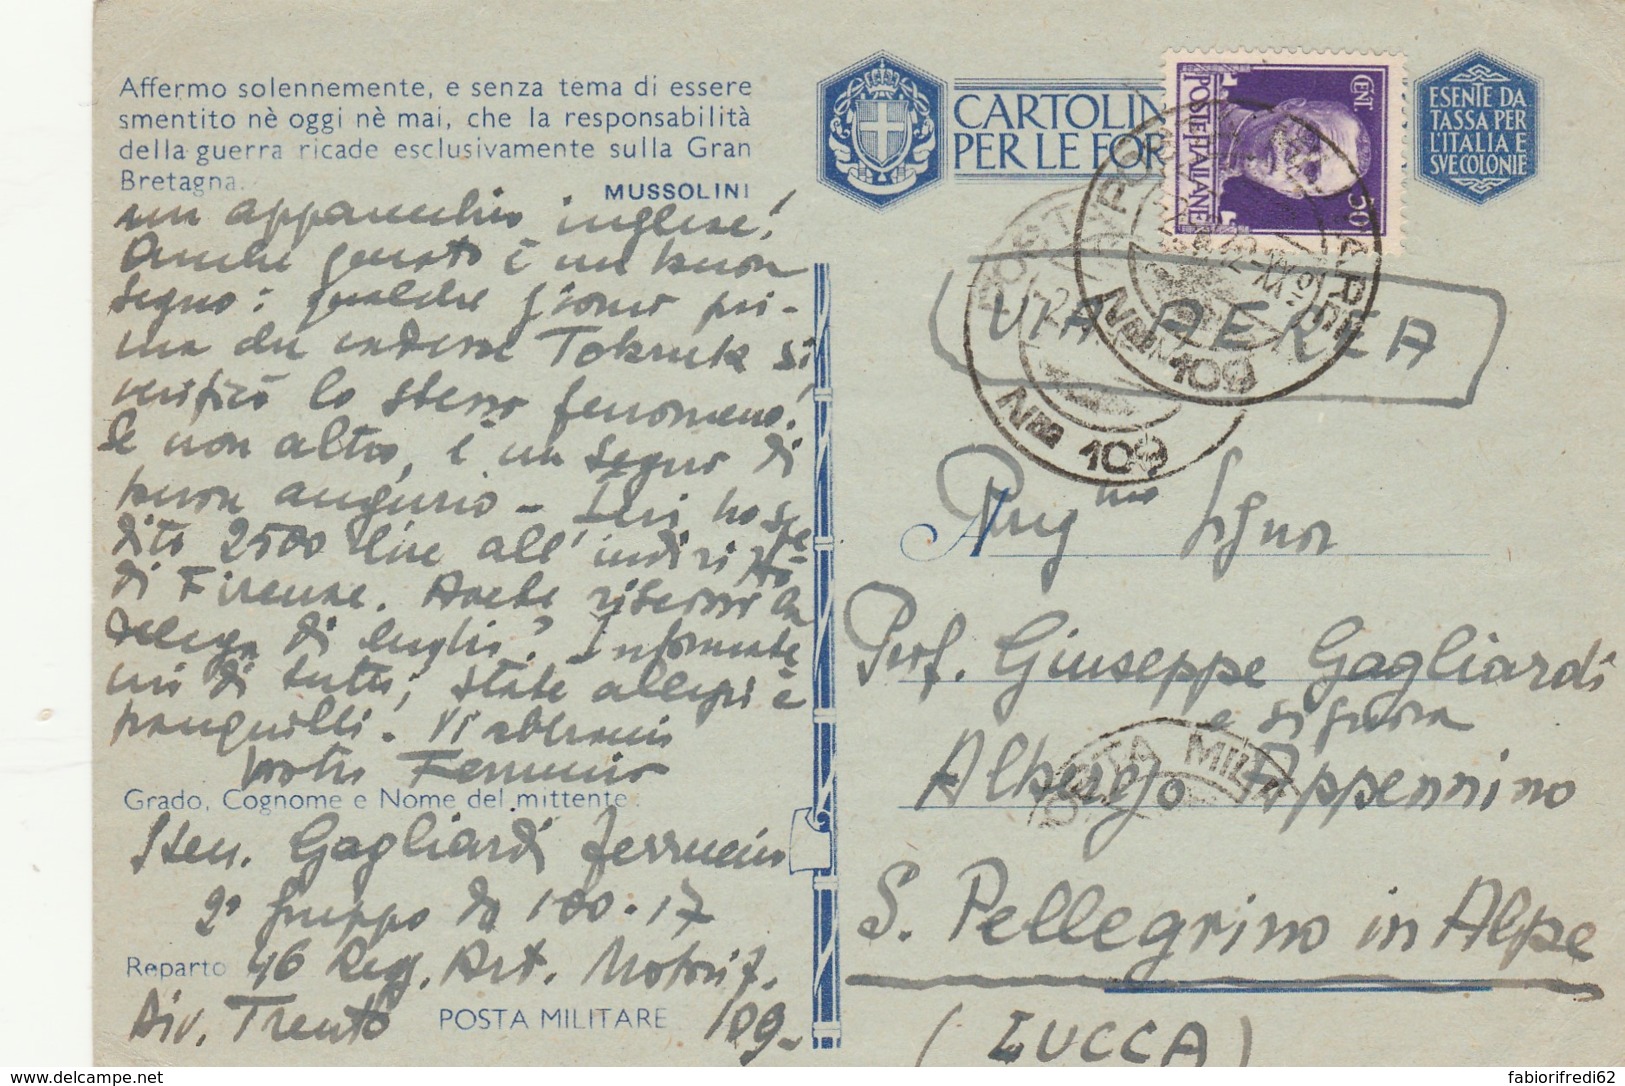 Affermo solennemente, e senza tema di essere
smentito nè oggi nè mai, che la responsabilità
della guerra ricade esclusivamente sulla Gran
Bretagna.
MUSSOLINI
un apparecchio inglese!
Anche questo è un buon
segno: qualche giorno pri-
ma di entrare Tobruk si
verificò lo stesso fenomeno!
Se non altro, è un segno di
buon augurio - Ieri ho spe
dito 2500 lire all'indirizzo
di Firenze. Avete riscosso la
delega di luglio? Informate
mi di tutto; state allegri e
tranquilli. Vi abbraccio
vostro Ferruccio
Grado, Cognome e Nome del mittente:
Sten. Gagliardi Ferruccio
2° gruppo da 100-17
Reparto 46 Regg. Art. Motoriz.
Div. Trento POSTA MILITARE 109-
CARTOLIN
PER LE FOR
CENT. 50
POSTE ITALIANE
ESENTE DA
TASSA PER
L'ITALIA E
SVE COLONIE
VIA AEREA
N. 109
N. 109
A Preg mo Signor
Prof. Giuseppe Gagliardi
e signora
Albergo Appennino
POSTA MILI
S. Pellegrino in Alpe
(LUCCA)
fabiorifredi62